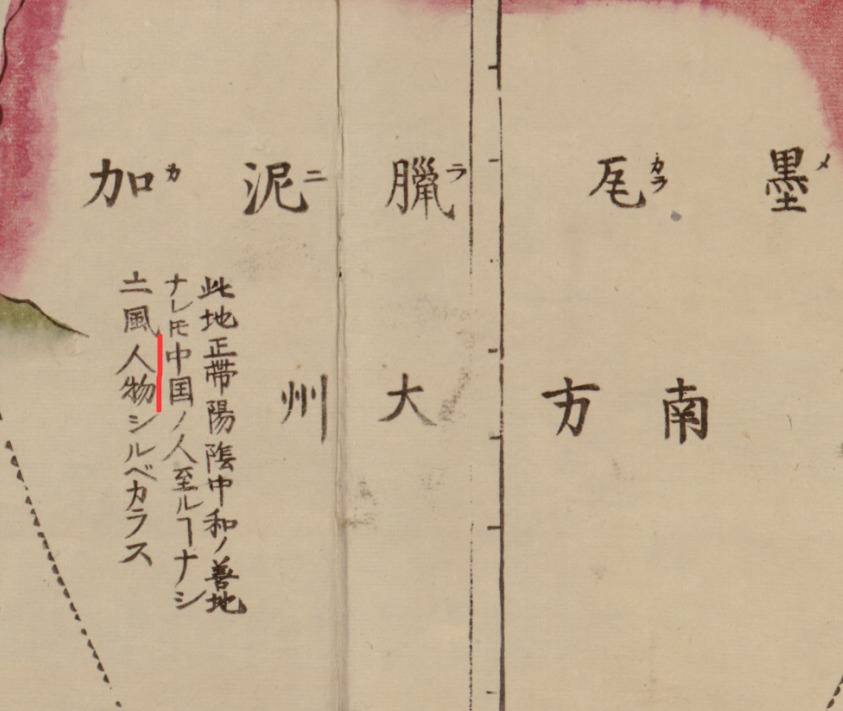 墨メ瓦カラ臘ラ泥ニ加カ
南方大州
此地正帶陽陰中和ノ善地
ナレ𪜈中国ノ人至ルヿナシ
土風人物シルベカラス